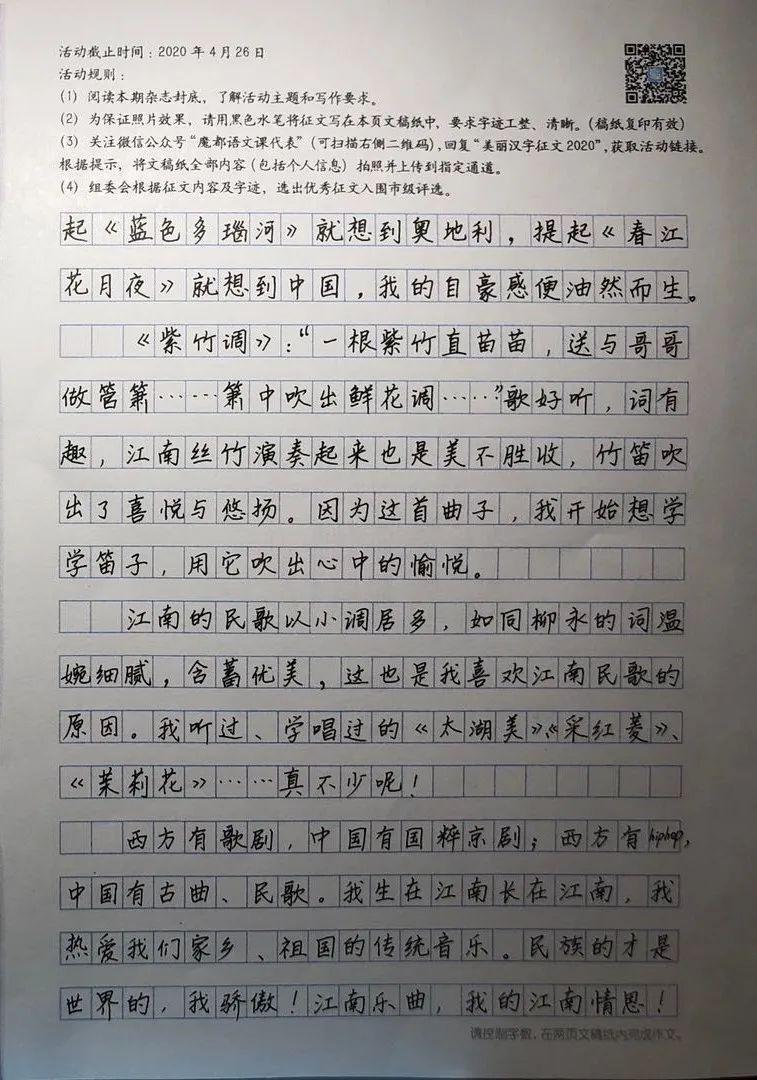 活动截止时间：2020 年 4 月 26 日
活动规则：
（1）阅读本期杂志封底，了解活动主题和写作要求。
（2）为保证照片效果，请用黑色水笔将征文写在本页文稿纸中，要求字迹工整、清晰。（稿纸复印有效）
（3）关注微信公众号“魔都语文课代表”（可扫描右侧二维码），回复“美丽汉字征文 2020”，获取活动链接。
根据提示，将文稿纸全部内容（包括个人信息）拍照并上传到指定通道。
（4）组委会根据征文内容及字迹，选出优秀征文入围市级评选。
起《蓝色多瑙河》就想到奥地利，提起《春江
花月夜》就想到中国，我的自豪感便油然而生。
《紫竹调》：“一根紫竹直苗苗，送与哥哥
做管箫……箫中吹出鲜花调……”歌好听，词有
趣，江南丝竹演奏起来也是美不胜收，竹笛吹
出了喜悦与悠扬。因为这首曲子，我开始想学
学笛子，用它吹出心中的愉悦。
江南的民歌以小调居多，如同柳永的词温
婉细腻，含蓄优美，这也是我喜欢江南民歌的
原因。我听过、学唱过的《太湖美》《采红菱》、
《茉莉花》……真不少呢！
西方有歌剧，中国有国粹京剧；西方有hiphop，
中国有古曲、民歌。我生在江南长在江南，我
热爱我们家乡、祖国的传统音乐。民族的才是
世界的，我骄傲！江南乐曲，我的江南情思！
请控制字数，在两页文稿纸内完成作文。